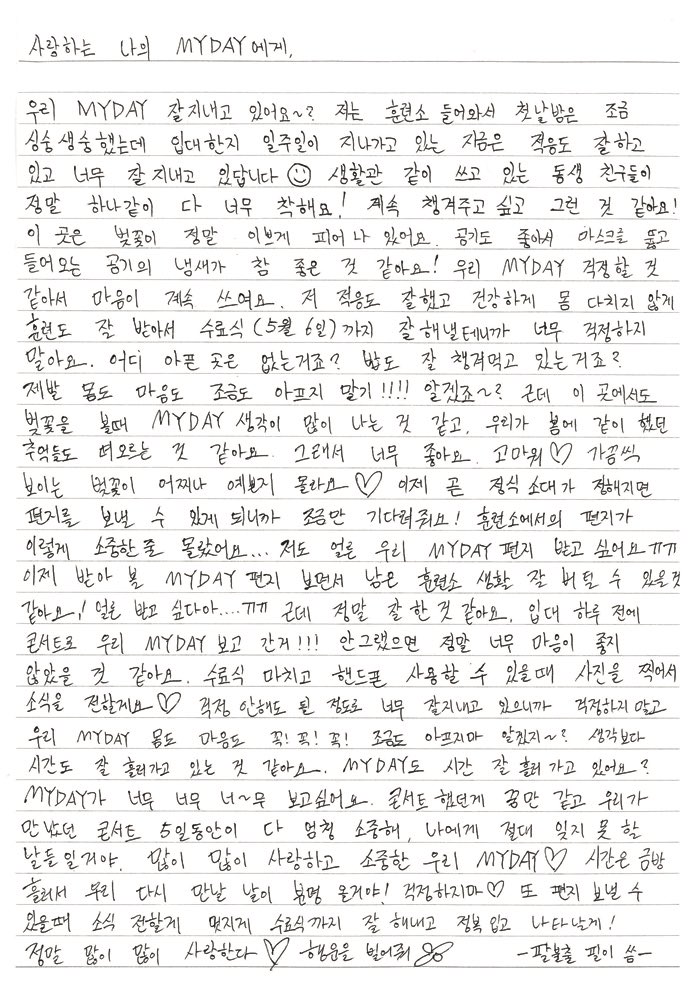 사랑하는 나의 MYDAY에게,
우리 MYDAY 잘지내고 있어요~? 저는 훈련소 들어와서 첫날밤은 조금
싱숭생숭했는데 입대한지 일주일이 지나가고 있는 지금은 적응도 잘하고
있고 너무 잘지내고 있답니다 ☺ 생활관 같이 쓰고 있는 동생 친구들이
정말 하나같이 다 너무 착해요! 계속 챙겨주고 싶고 그런 것 같아요!
이 곳은 벚꽃이 정말 이쁘게 피어나 있어요. 공기도 좋아서 마스크를 뚫고
들어오는 공기의 냄새가 참 좋은 것 같아요! 우리 MYDAY 걱정할 것
같아서 마음이 계속 쓰여요. 저 적응도 잘했고 건강하게 몸 다치지 않게
훈련도 잘 받아서 수료식 (5월 6일)까지 잘해낼테니까 너무 걱정하지
말아요. 어디 아픈 곳은 없는거죠? 밥도 잘 챙겨먹고 있는거죠?
제발 몸도 마음도 조금도 아프지 말기!!!! 알겠죠~? 근데 이 곳에서도
벚꽃을 볼때 MYDAY 생각이 많이 나는 것 같고, 우리가 봄에 같이 했던
추억들도 떠오르는 것 같아요. 그래서 너무 좋아요. 고마워♡ 가끔씩
보이는 벚꽃이 어찌나 예쁘지 몰라요♡ 이제 곧 정식 소대가 정해지면
편지를 보낼 수 있게 되니까 조금만 기다려줘요! 훈련소에서의 편지가
이렇게 소중한줄 몰랐어요... 저도 얼른 우리 MYDAY 편지 받고 싶어요ㅠㅠ
이제 받아 볼 MYDAY 편지 보면서 남은 훈련소 생활 잘 버틸 수 있을것
같아요! 얼른 받고 싶다아....ㅠㅠ 근데 정말 잘한것 같아요. 입대 하루 전에
콘서트로 우리 MYDAY 보고 간거!!! 안그랬으면 정말 너무 마음이 좋지
않았을 것 같아요. 수료식 마치고 핸드폰 사용할 수 있을때 사진을 찍어서
소식을 전할게요♡ 걱정 안해도 될 정도로 너무 잘지내고 있으니까 걱정하지말고
우리 MYDAY 몸도 마음도 꼭! 꼭! 꼭! 조금도 아프지마 알겠지~? 생각보다
시간도 잘 흘러가고 있는 것 같아요. MYDAY도 시간 잘 흘러 가고 있어요?
MYDAY가 너무 너무 너~무 보고싶어요. 콘서트 했던게 꿈만 같고 우리가
만났던 콘서트 5일동안이 다 엄청 소중해, 나에게 절대 잊지 못 할
날들일거야. 많이 많이 사랑하고 소중한 우리 MYDAY♡ 시간은 금방
흘러서 우리 다시 만날 날이 분명 올거야! 걱정하지마♡ 또 편지 보낼 수
있을때 소식 전할게 멋지게 수료식까지 잘 해내고 정복 입고 나타날게!
정말 많이 많이 사랑한다♡ 행운을 빌어줘 -팔불출 필이 씀-